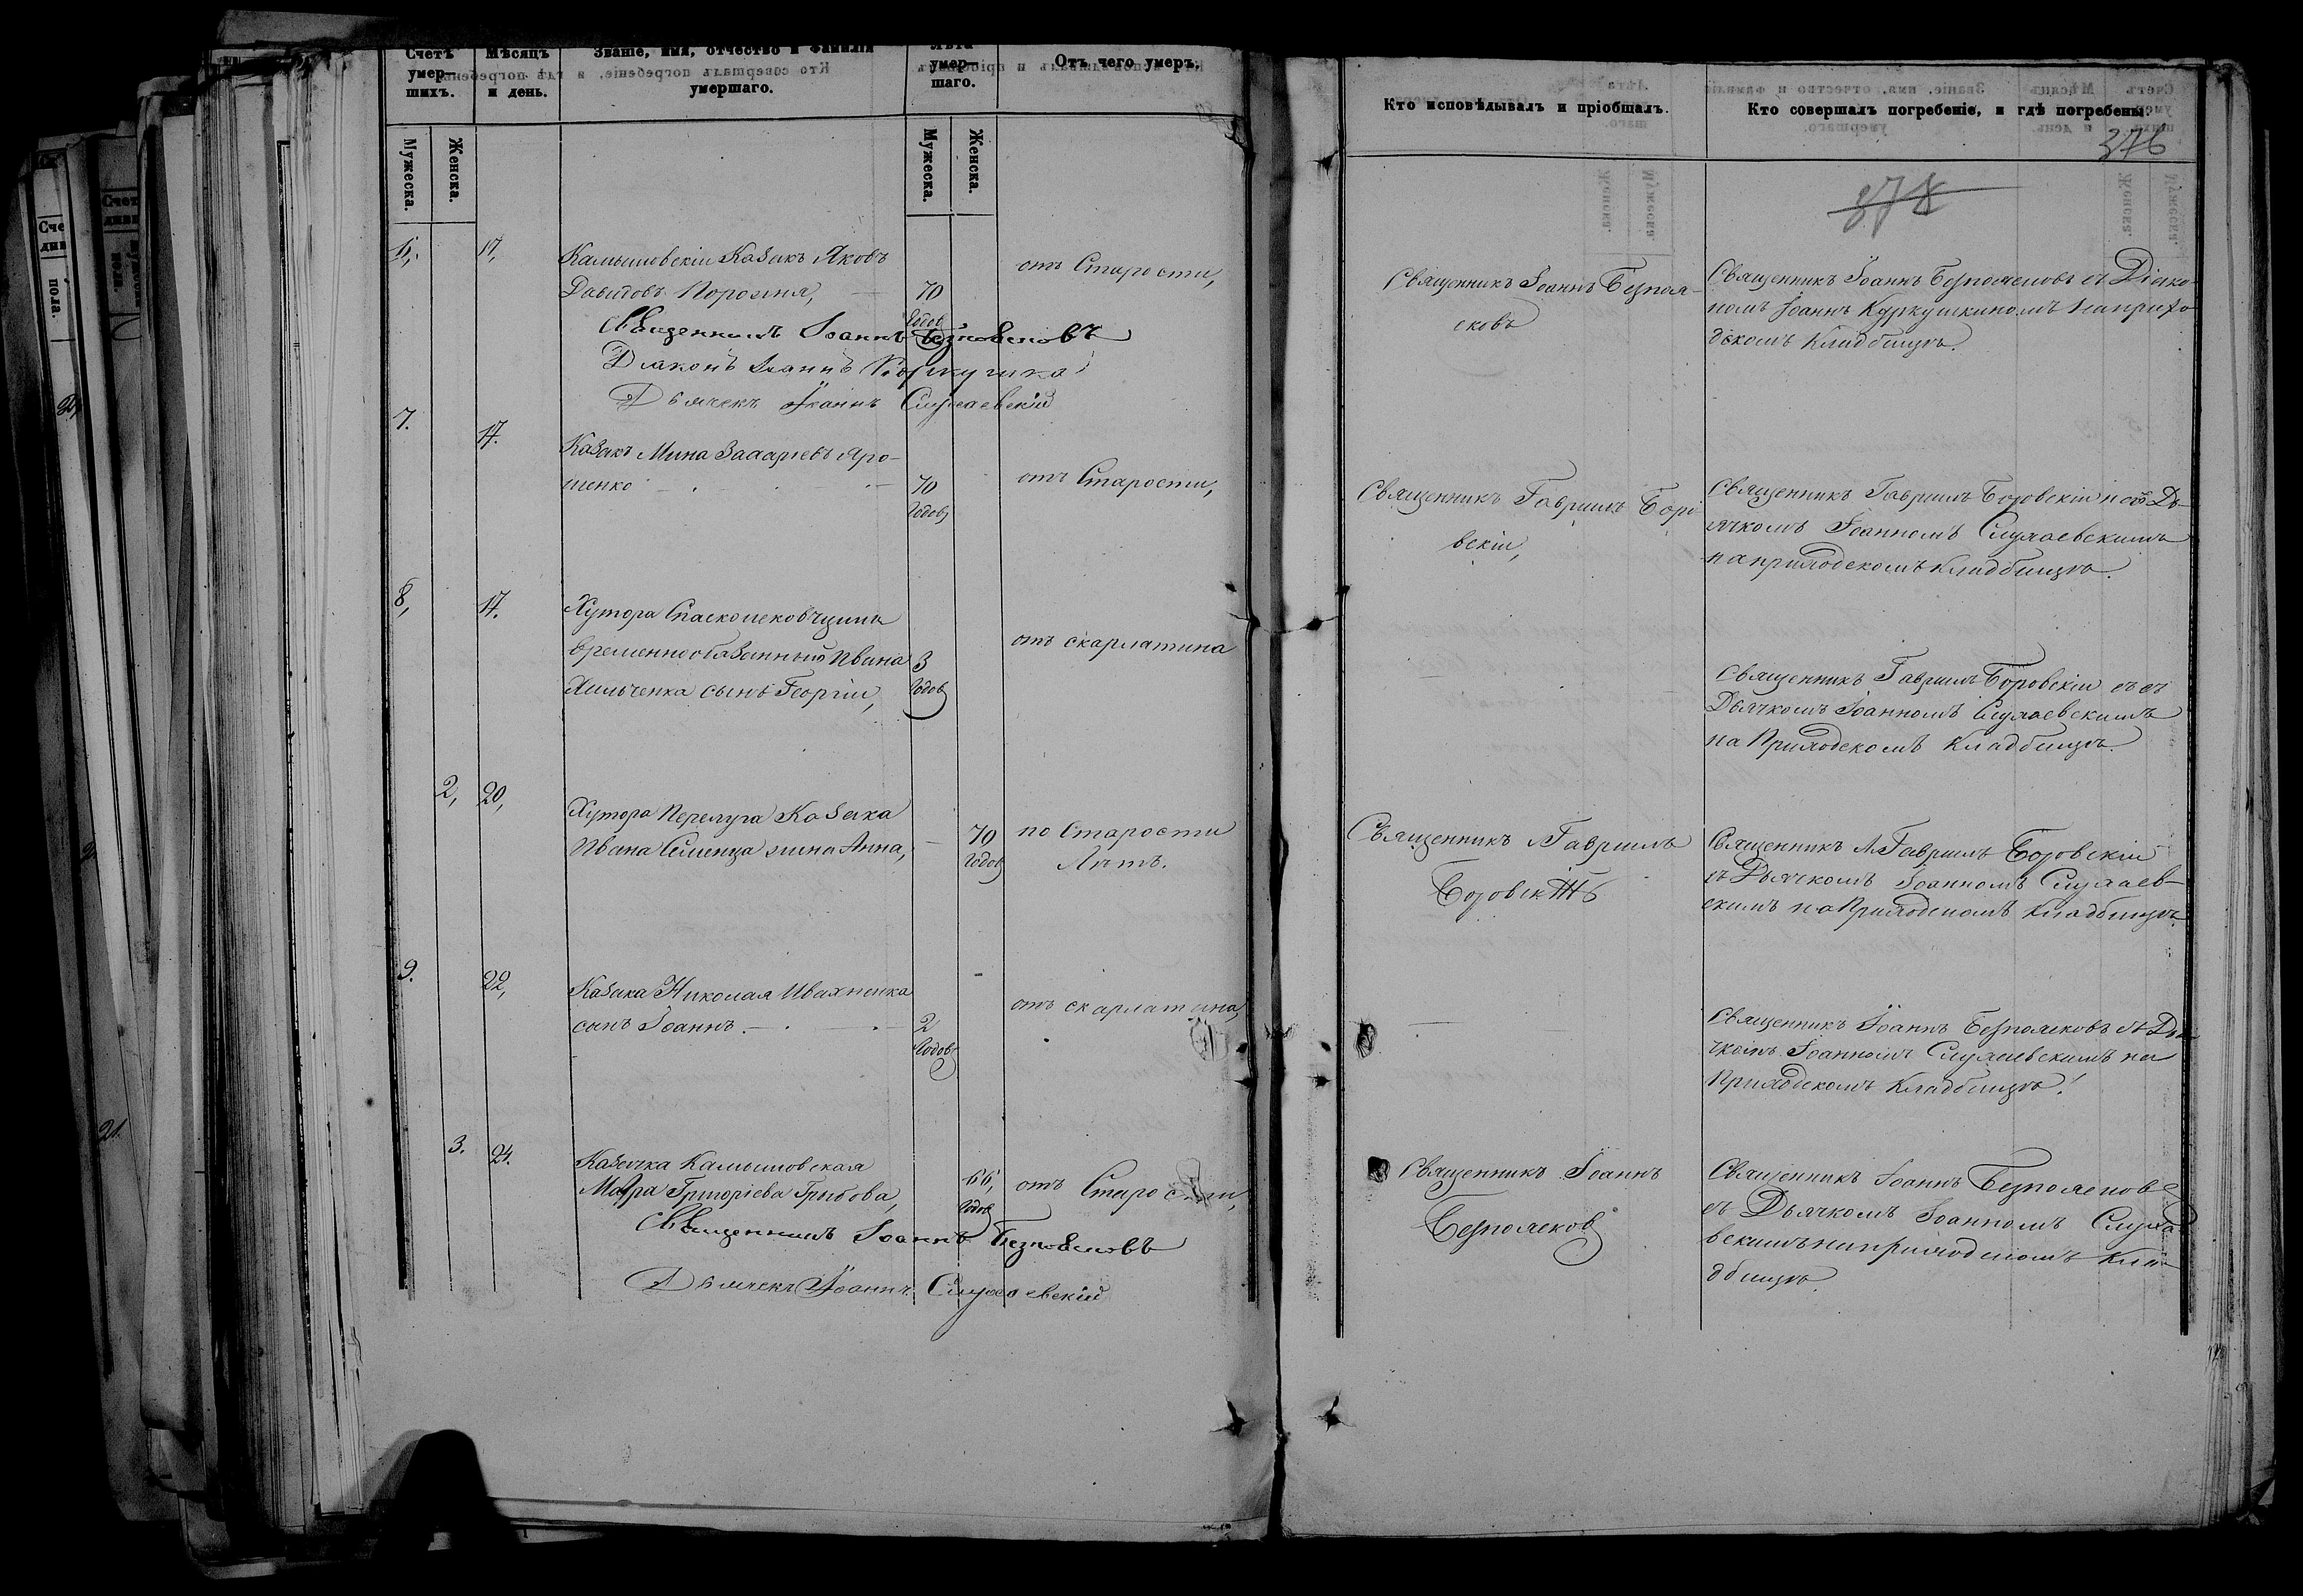 Счетъ умер- шихъ.
Мѣсяцъ и день.
Званіе, имя, отчество и фамилія умершаго.
Лѣта умер- шаго.
Отъ чего умеръ.
Мужеска.
Женска.
Мужеска.
Женска.
6,
17,
Казакъ Яковъ
Давидовъ
70
Годов
отъ Старости,
Священникъ Іоаннъ Безполсковъ
Діаконъ Іоаннъ
Дьячекъ Іоаннъ Слухаевскій
7.
17.
Казакъ Мина Захаріевъ Яро-
шенко
70
Годов
отъ Старости,
8,
17.
Хутора
временнообязанный Ивана
Хильченка сынъ Георгій,
3
Годов
отъ скарлатина
2,
20,
Хутора Перелуга Казака
Ивана жина Анна,
70
Годов
по Старости
Лѣтъ.
9.
22,
Казака Николая Ивахненка
сынъ Іоаннъ.
2
Годов
отъ скарлатина,
3.
24.
Казачка
Григоріева
66,
Годов
отъ Старости,
Священникъ Іоаннъ Безполсковъ
Дьячекъ Іоаннъ Слухаевскій
Кто исповѣдывалъ и пріобщалъ.
Кто совершалъ погребеніе, и гдѣ погребены?
376
378
Священникъ Іоаннъ Безпол-
сковъ
Священникъ Іоаннъ Безполсковъ съ Діако-
номъ Іоаннъ на прихо
дскомъ Кладбищѣ.
Священникъ Гавріилъ Боро
вскій,
Священникъ Гавріилъ Боровскій съ Дь-
ячкомъ Іоанномъ Слухаевскимъ
на приходскомъ Кладбищѣ.
Священникъ Гавріилъ Боровскій съ
Дьячкомъ Іоанномъ Слухаевскимъ
на Приходскомъ Кладбищѣ.
Священникъ Гавріилъ
Боровскій
Священникъ Гавріилъ Боровскій
съ Дьячкомъ Іоанномъ Слухаев-
скимъ на Приходскомъ Кладбищѣ.
Священникъ Іоаннъ Безполсковъ съ Дья
чкомъ Іоанномъ Слухаевскимъ на
Приходскомъ Кладбищѣ.
Священникъ Іоаннъ
Безполсков
Священникъ Іоаннъ Безполсковъ
съ Дьячкомъ Іоанномъ Слухае
вскимъ на приходскомъ Кла
дбищѣ